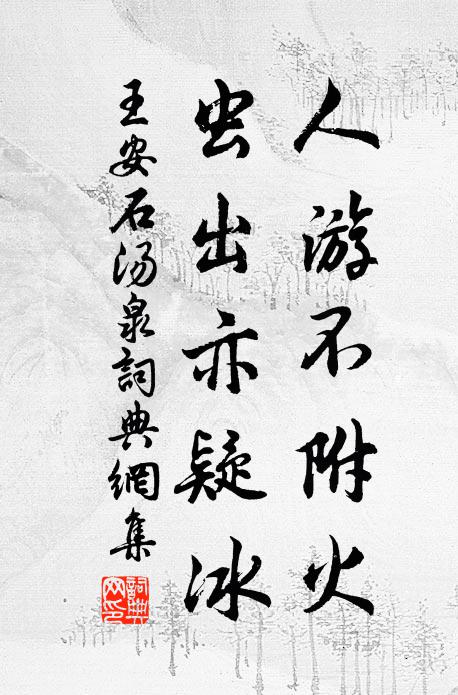 人游不附火
虫出亦疑冰
王安石汤泉詞典網集
詞典网印